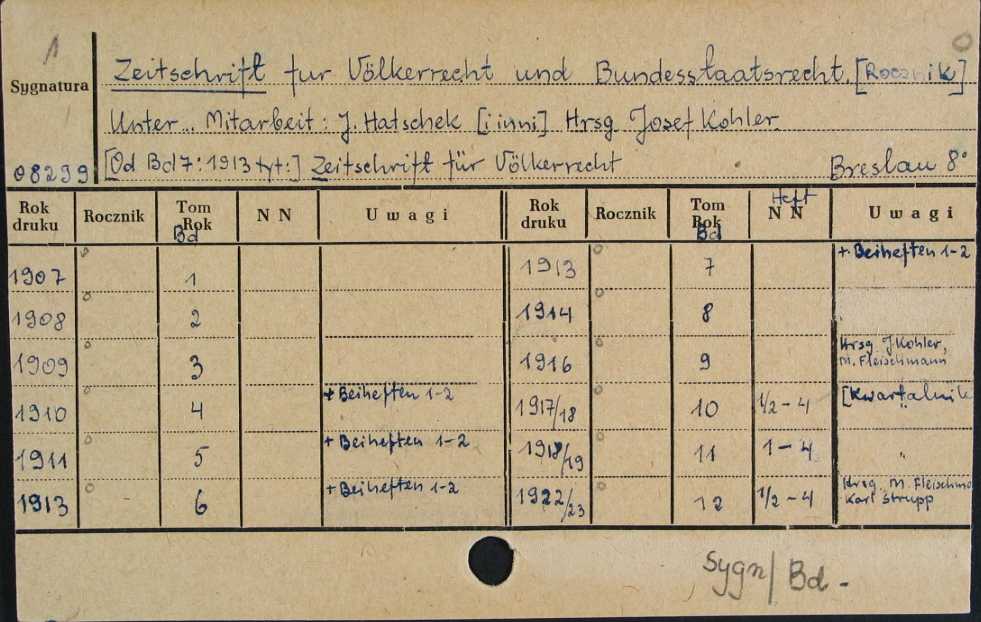 1
Sygnatura
08299
Zeitschrift fur Völkerrecht und Bundesstaatsrecht. [Rocznik]
Unter... Mitarbeit: J. Hatschek [i inni] Hrsg Josef Kohler.
[Od Bd 7: 1913 tyt:] Zeitschrift für Völkerrecht Breslau 8°
Rok druku Rocznik Tom Rok Bd N N Uwagi Rok druku Rocznik Tom Rok Bd Heft N N Uwagi
1907 1 1913 7 + Beiheften 1-2
1908 2 1914 8
1909 3 1916 9 Hrsg J Kohler, M. Fleischmann
1910 4 + Beiheften 1-2 1917/18 10 1/2-4 [Kwartalnik
1911 5 + Beiheften 1-2 1918/19 11 1-4 "
1913 6 + Beiheften 1-2 1922/23 12 1/2-4 Hrsg. M. Fleischma Karl Strupp
Sygn/Bd-